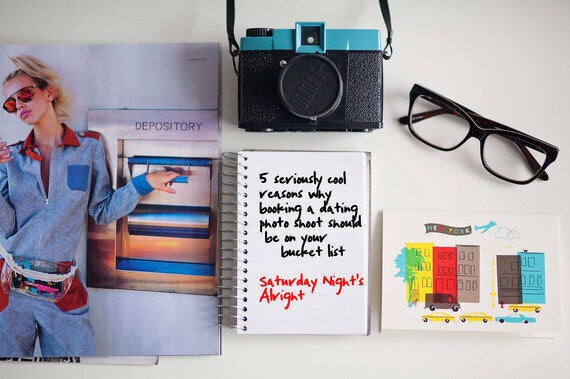 DEPOSITORY
5 seriously cool
reasons why
booking a dating
photo shoot should
be on your
bucket list
Saturday Night's
Alright
NEW YORK